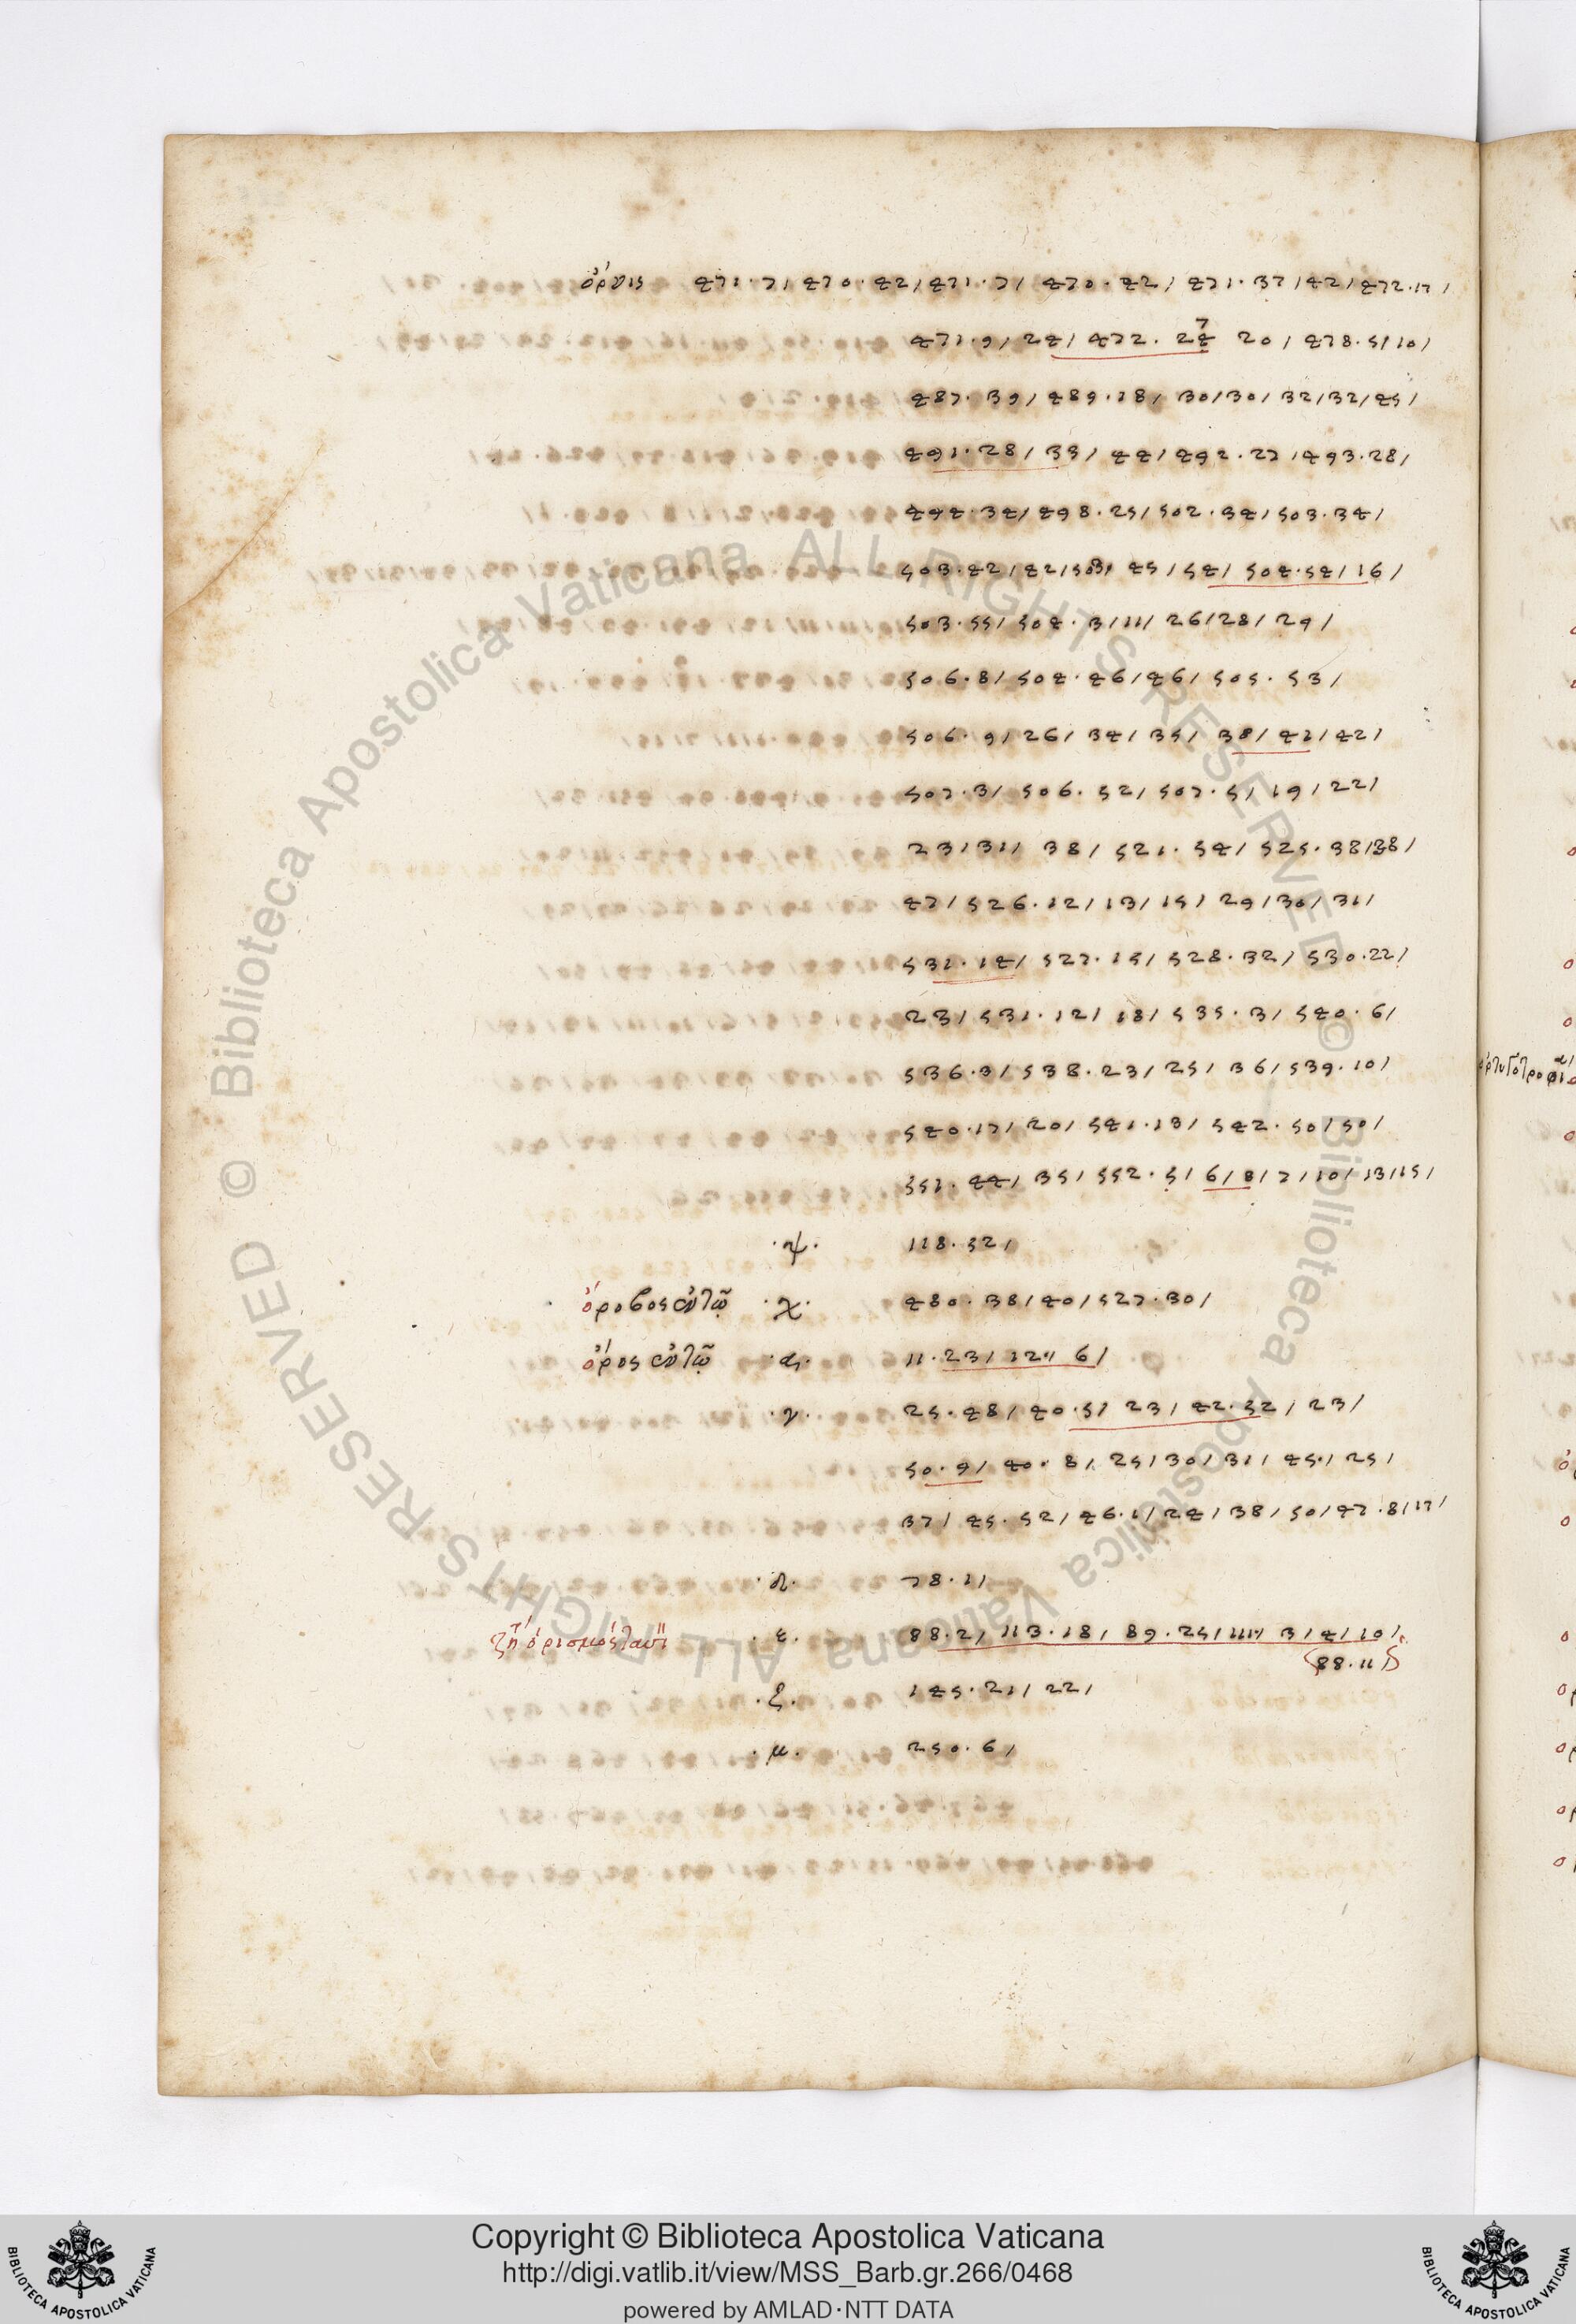 ὄρνις 471.7/470.42/471.7/470.42/471.37/42/472.17/
471.9/24/472.24 7 20/478.5/10/
487.39/489.18/30/30/32/32/45/
491.28/33/44/492.27/493.28/
494.34/498.25/502.34/503.34/
503.42/42/503/45/54/504.54/16/
503.55/504.3/11/26/28/29/
506.8/504.46/46/505.53/
506.9/26/34/35/38/41/42/
507.3/506.52/507.5/19/22/
23/31/38/521.54/525.38/38/
47/526.12/13/15/29/30/31/
531.14/527.15/528.32/530.22/
23/531.12/18/535.3/540.6/
536.3/538.23/25/36/539.10/
540.17/20/541.13/542.50/50/
551.44/35/552.5/6/8/7/10/13/15/
.ψ. 118.52/
ὄροβος ἐν τῷ .χ. 480.38/40/527.30/
ὄρος ἐν τῷ .α. 11.23/12// 6/
.γ. 25.48/40.5/23/42.52/23/
50.9/40.8/25/30/31/45/25/
37/45.52/46.1/24/38/50/47.8/17/
.δ. 78.1/
ζητ ὁρισμός .ε. 88.2/113.18/89.25/11// 3/4/10/
88.11/
.ξ. 145.21/22/
.μ. 250.6/
ALL RIGHTS RESERVED © Biblioteca Apostolica Vaticana ALL RIGHTS RESERVED © Biblioteca Apostolica Vaticana
Copyright © Biblioteca Apostolica Vaticana
http://digi.vatlib.it/view/MSS_Barb.gr.266/0468
powered by AMLAD·NTT DATA
BIBLIOTECA APOSTOLICA VATICANA
BIBLIOTECA APOSTOLICA VATICANA